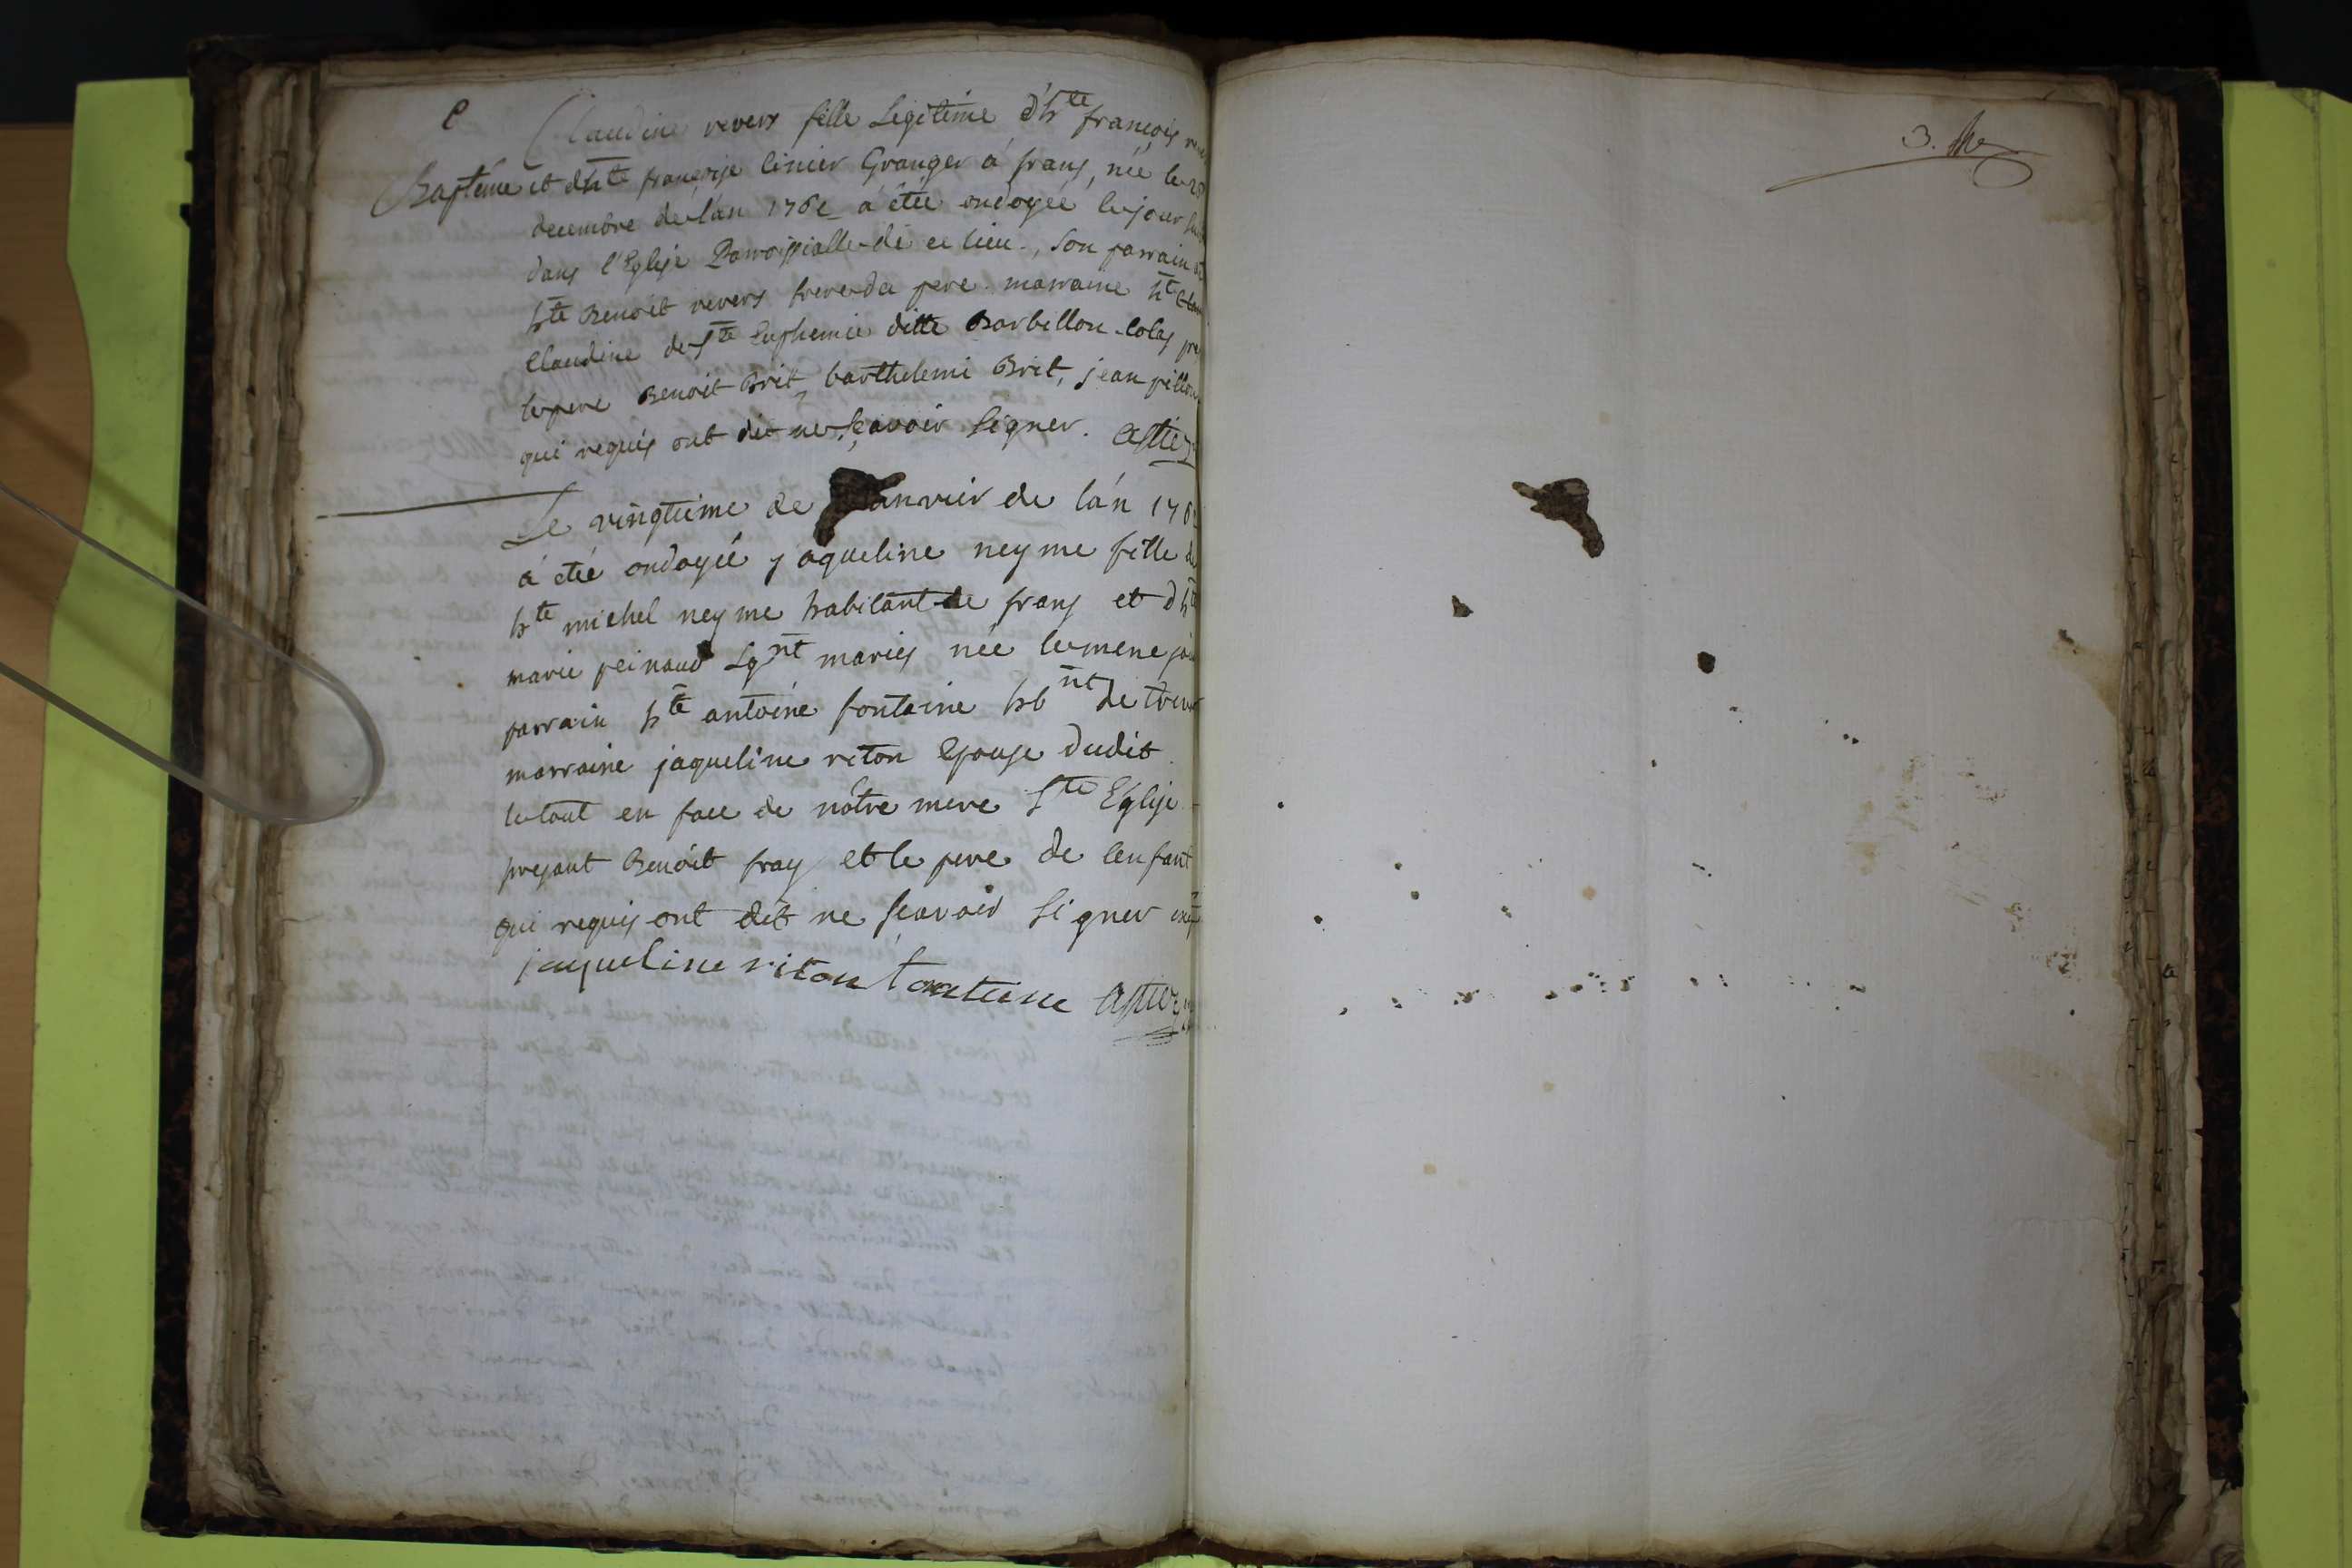 e
Claudine revers fille Legitime d'hte françois
Baptême et dhte françoise linier Granger à frans, née le 28
decembre de l'an 176 a étée ondoyée le jour
dans l'Eglise Parroissialle de ce lieu, son parrain
hte Benoit revers frere du pere. marraine hte
Claudine de Ste Euphemie ditte Barbillon colas
le pere Benoit Brit, barthelemi Brit, jean
qui requis ont dit ne sçavoir signer. astier
Le vingtième de janvier de lan 176
à étée ondoyée jaqueline neyme fille de
hte michel neyme habitant de frans et dhte
marie peinaud Lgnt mariés née le meme
parrain hte antoine fontaine hbnt de
marraine jaqueline riton epouse dudit
le tout en face de nôtre mere Ste Eglise
presant Benoit fray et le pere de l'enfant
qui requis ont dit ne sçavoir signer
jaqueline riton fontaine astier
3.